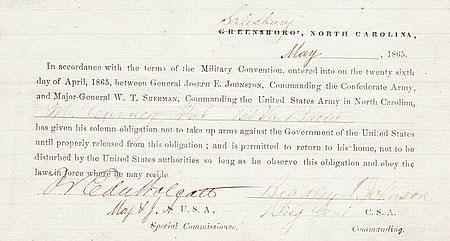 Salisbury
GREENSBORO', NORTH CAROLINA,
May , 1865.
In accordance with the terms of the Military Convention, entered into on the twenty sixth
day of April, 1865, between General JOSEPH E. JOHNSTON, Commanding the Confederate Army,
and Major-General W. T. SHERMAN, Commanding the United States Army in North Carolina,
has given his solemn obligation not to take up arms against the Government of the United States
until properly released from this obligation ; and is permitted to return to his home, not to be
disturbed by the United States authorities so long as he observe this obligation and obey the
laws in force where he may reside.
Bradley T. Johnson
Maj & J. A U. S. A., Brig Genl C. S. A.
Special Commissioner. Commanding.